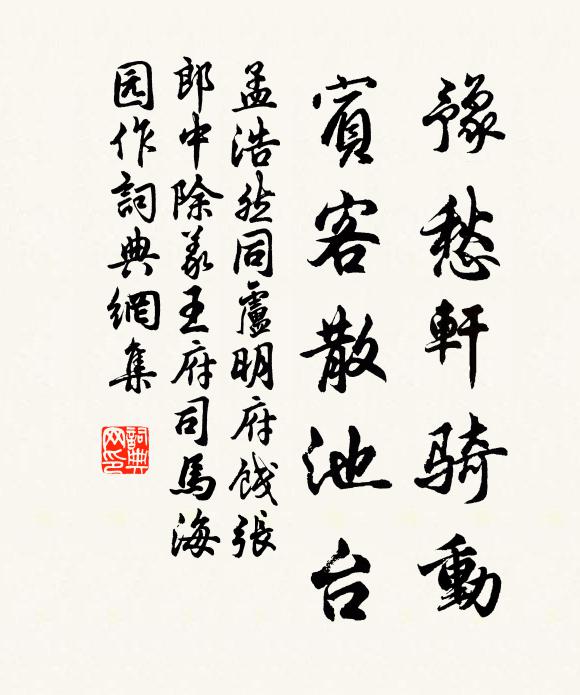 豫愁軒騎動
賓客散池台
孟浩然同盧明府餞張
郎中除義王府司馬海
园作詞典網集
詞典
网印